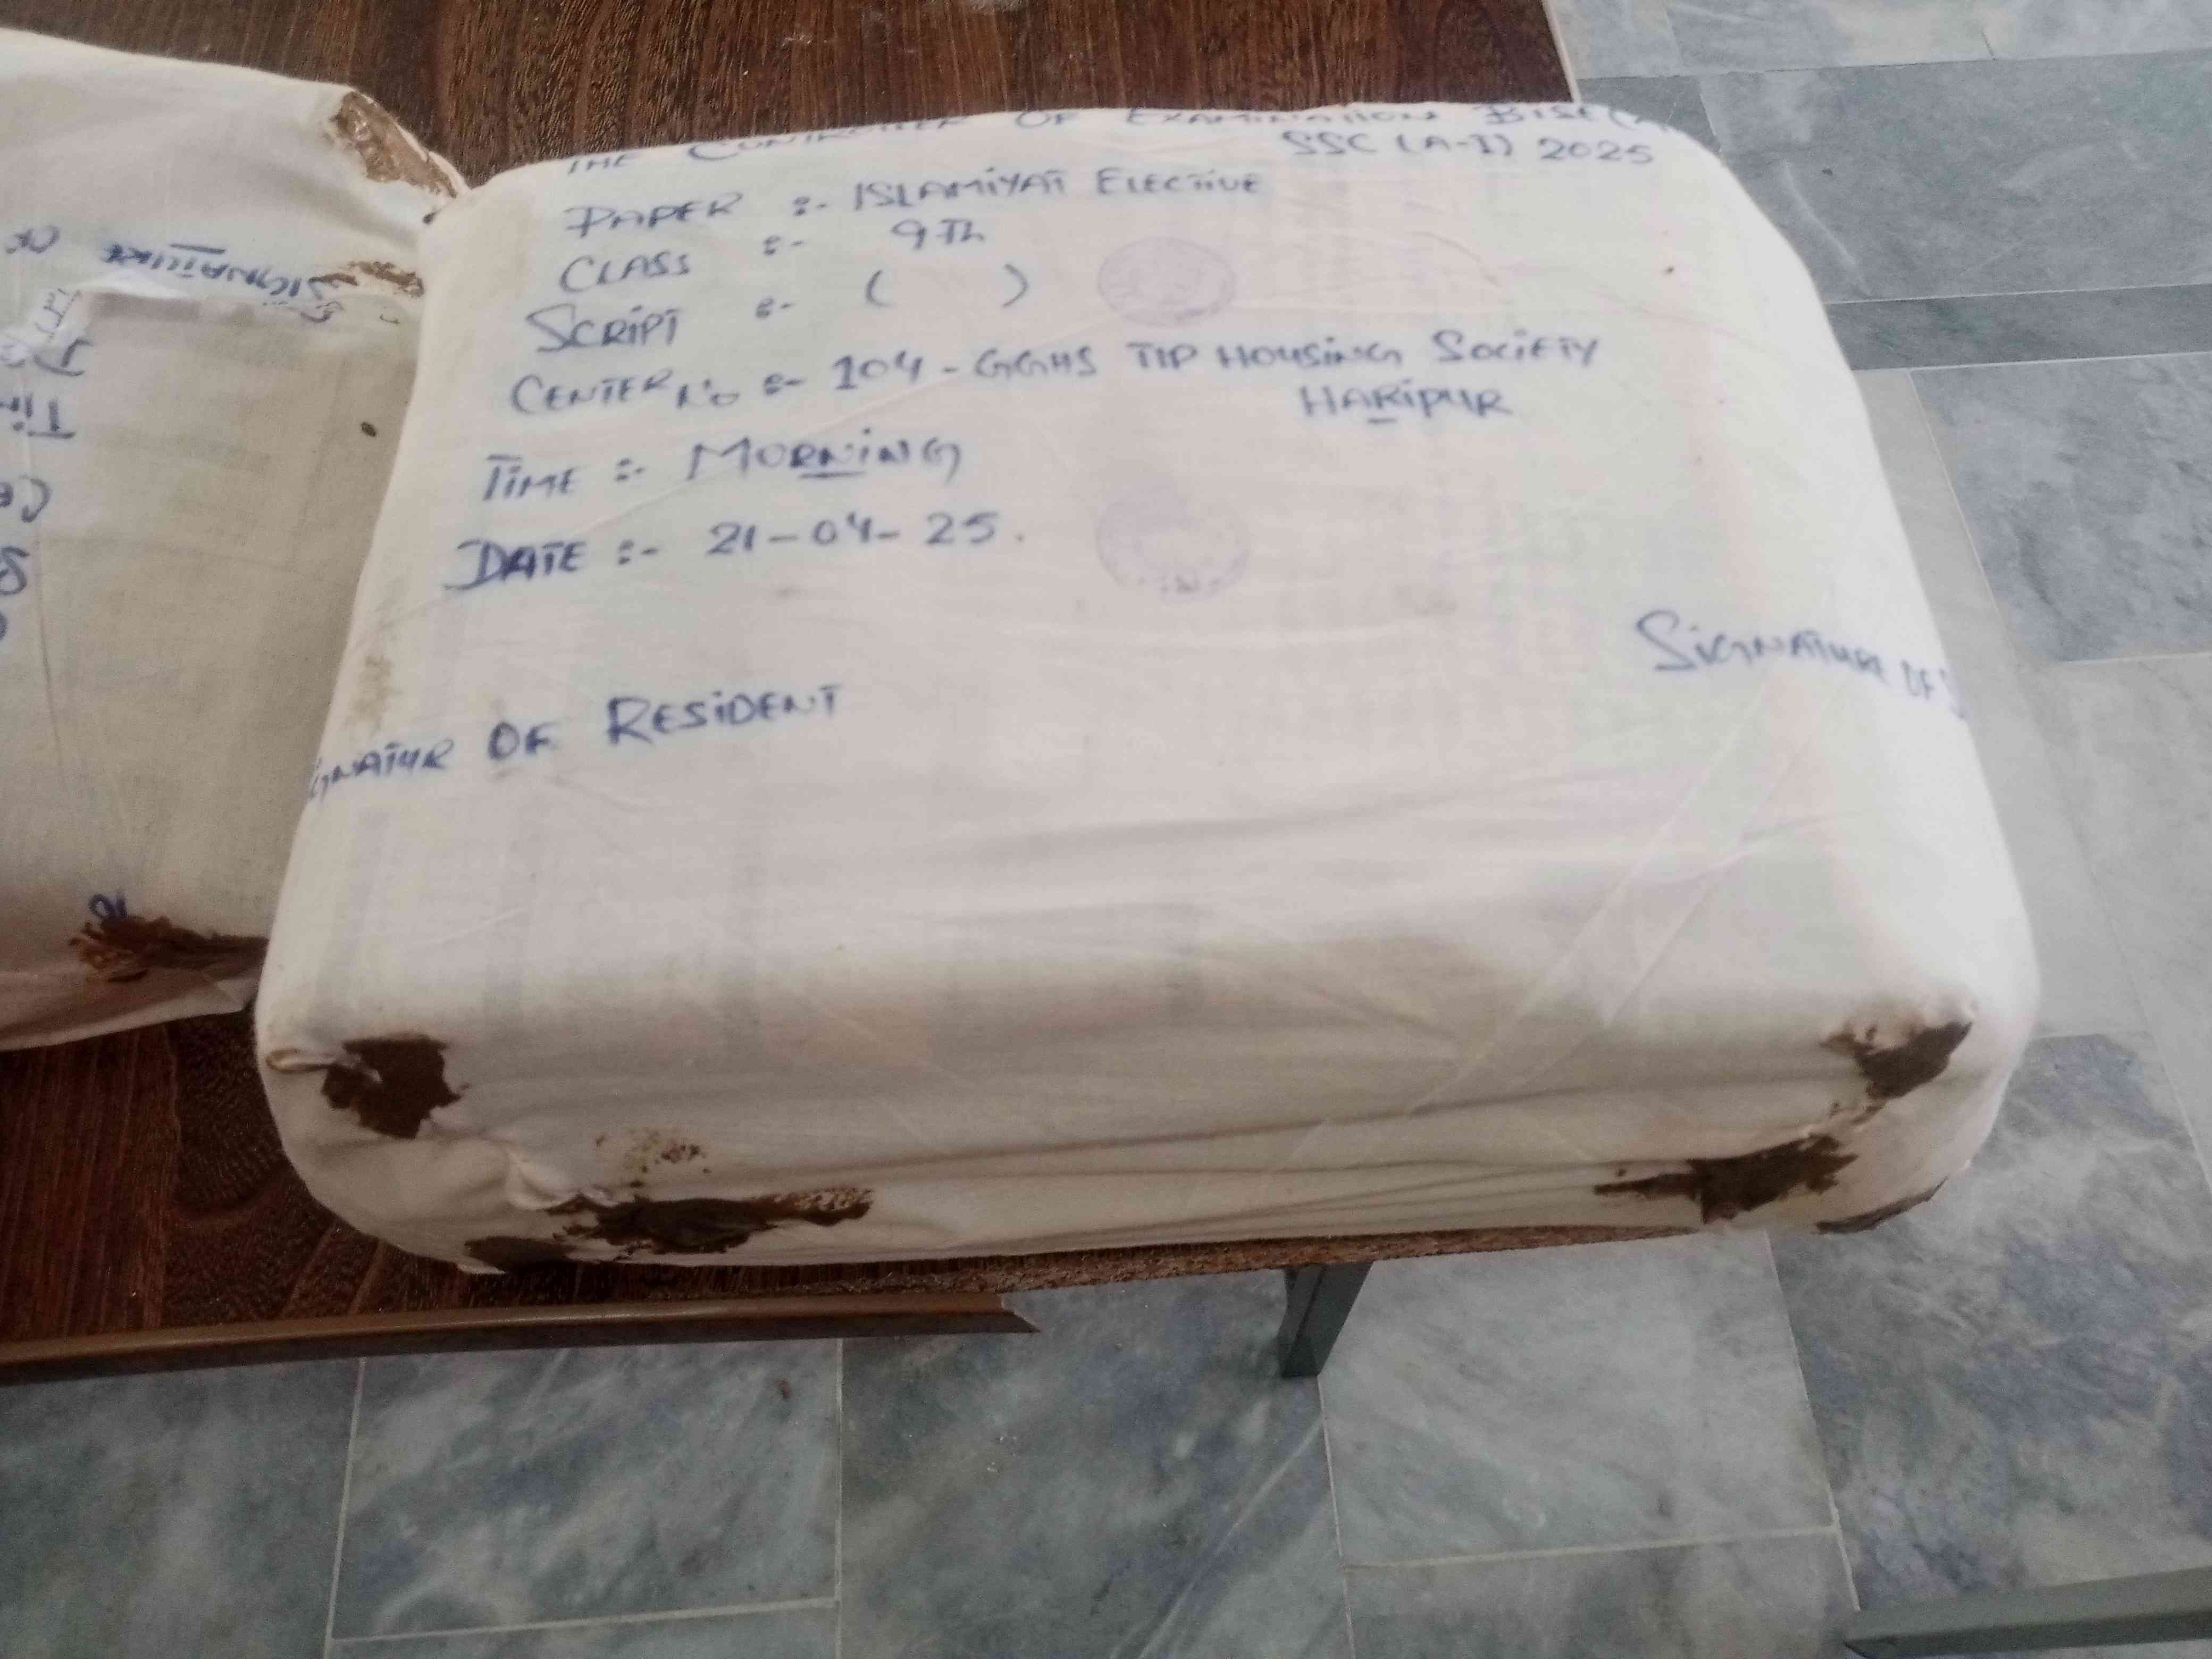 THE CONTROLLER OF EXAMINATION BISE
SSC (A-I) 2025
PAPER :- ISLAMIYAT ELECTIVE
CLASS :- 9Th
SCRIPT :- ( )
CENTER No :- 104 - GGHS TIP HOUSING SOCIETY
HARIPUR
TIME :- MORNING
DATE :- 21-04-25.
SIGNATURE OF
IGNATUR OF RESIDENT
SIGNATURE OF